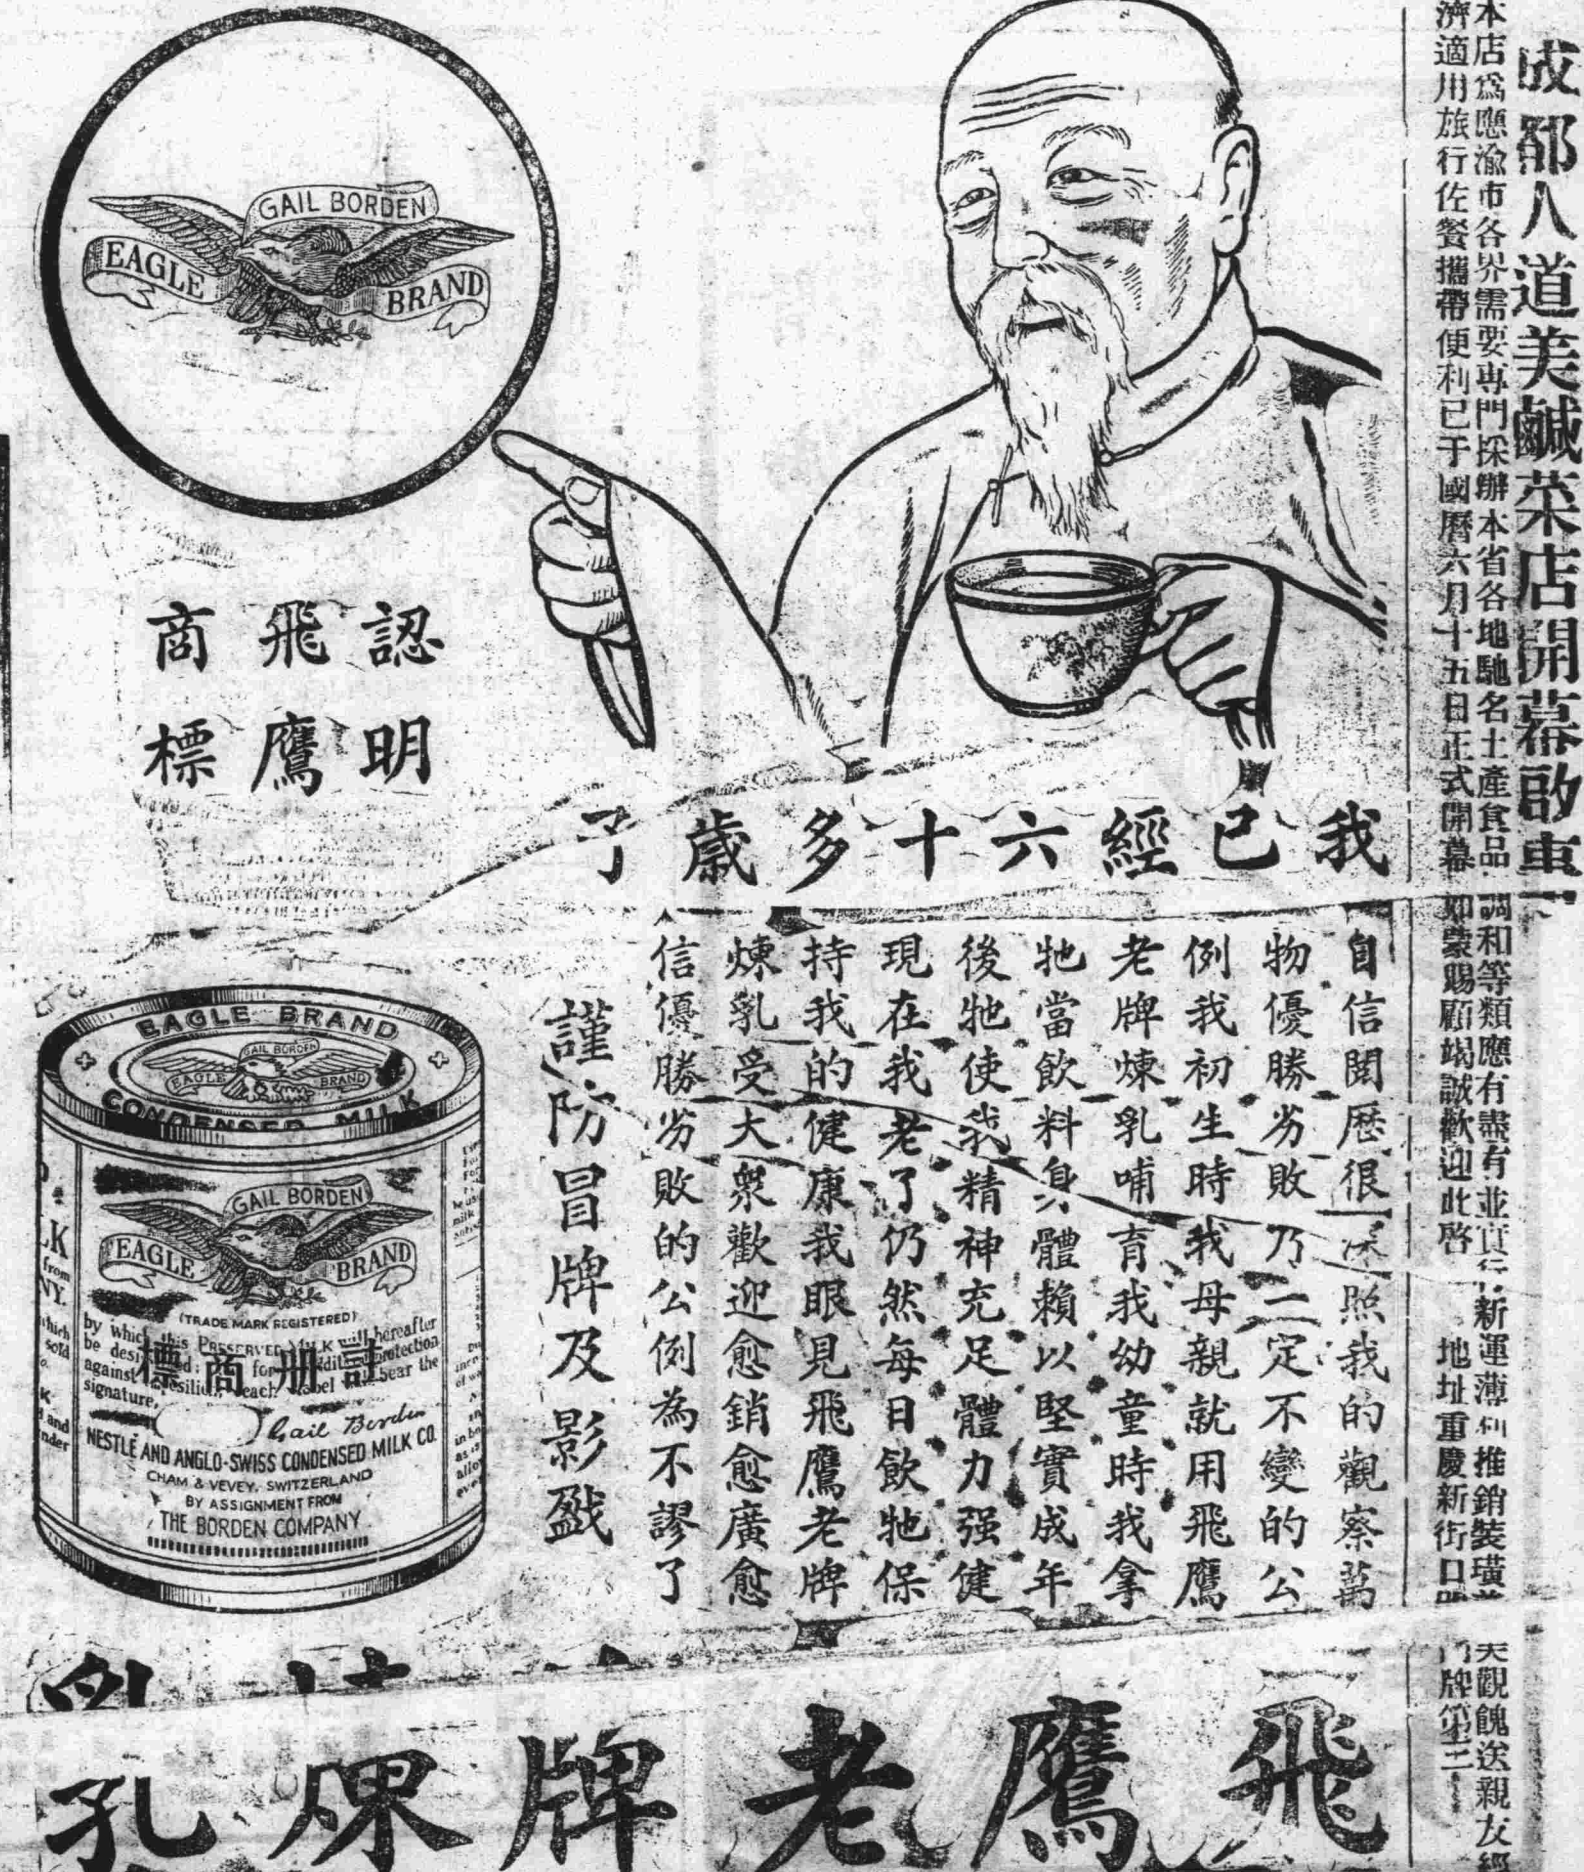 成都人道美鹹菜店開幕啟事
本店爲應渝市各界需要専門採辦本省各地馳名土產食品調和等類應有盡有並實行新運薄利推銷裝璜美
觀餽送親友經
濟適用旅行佐餐攜帶便利已于國曆六月十五日正式開幕如蒙賜顧竭誠歡迎此啓
地址重慶新街口
門牌第三
GAIL BORDEN
EAGLE BRAND
認明
飛鷹
商標
我已經六十多歲了
自信閱歷很深照我的觀察萬
物優勝劣敗乃一定不變的公
例我初生時我母親就用飛鷹
老牌煉乳哺育我幼童時我拿
牠當飲料身體賴以堅實成年
後牠使我精神充足體力强健
現在我老了仍然每日飲牠保
持我的健康我眼見飛鷹老牌
煉乳受大衆歡迎愈銷愈廣愈
信優勝劣敗的公例為不謬了
謹防冒牌及影戤
EAGLE BRAND
GAIL BORDEN
EAGLE BRAND
CONDENSED MILK
GAIL BORDEN
EAGLE BRAND
(TRADE MARK REGISTERED)
by which this PRESERVED MILK will hereafter
be designated; for additional protection
against each label will bear the
signature,
註册商標
Gail Borden
NESTLÉ AND ANGLO-SWISS CONDENSED MILK CO.
CHAM & VEVEY, SWITZERLAND
BY ASSIGNMENT FROM
THE BORDEN COMPANY
LK
from
NY.
which
sold
and
nder
飛鷹老牌煉乳